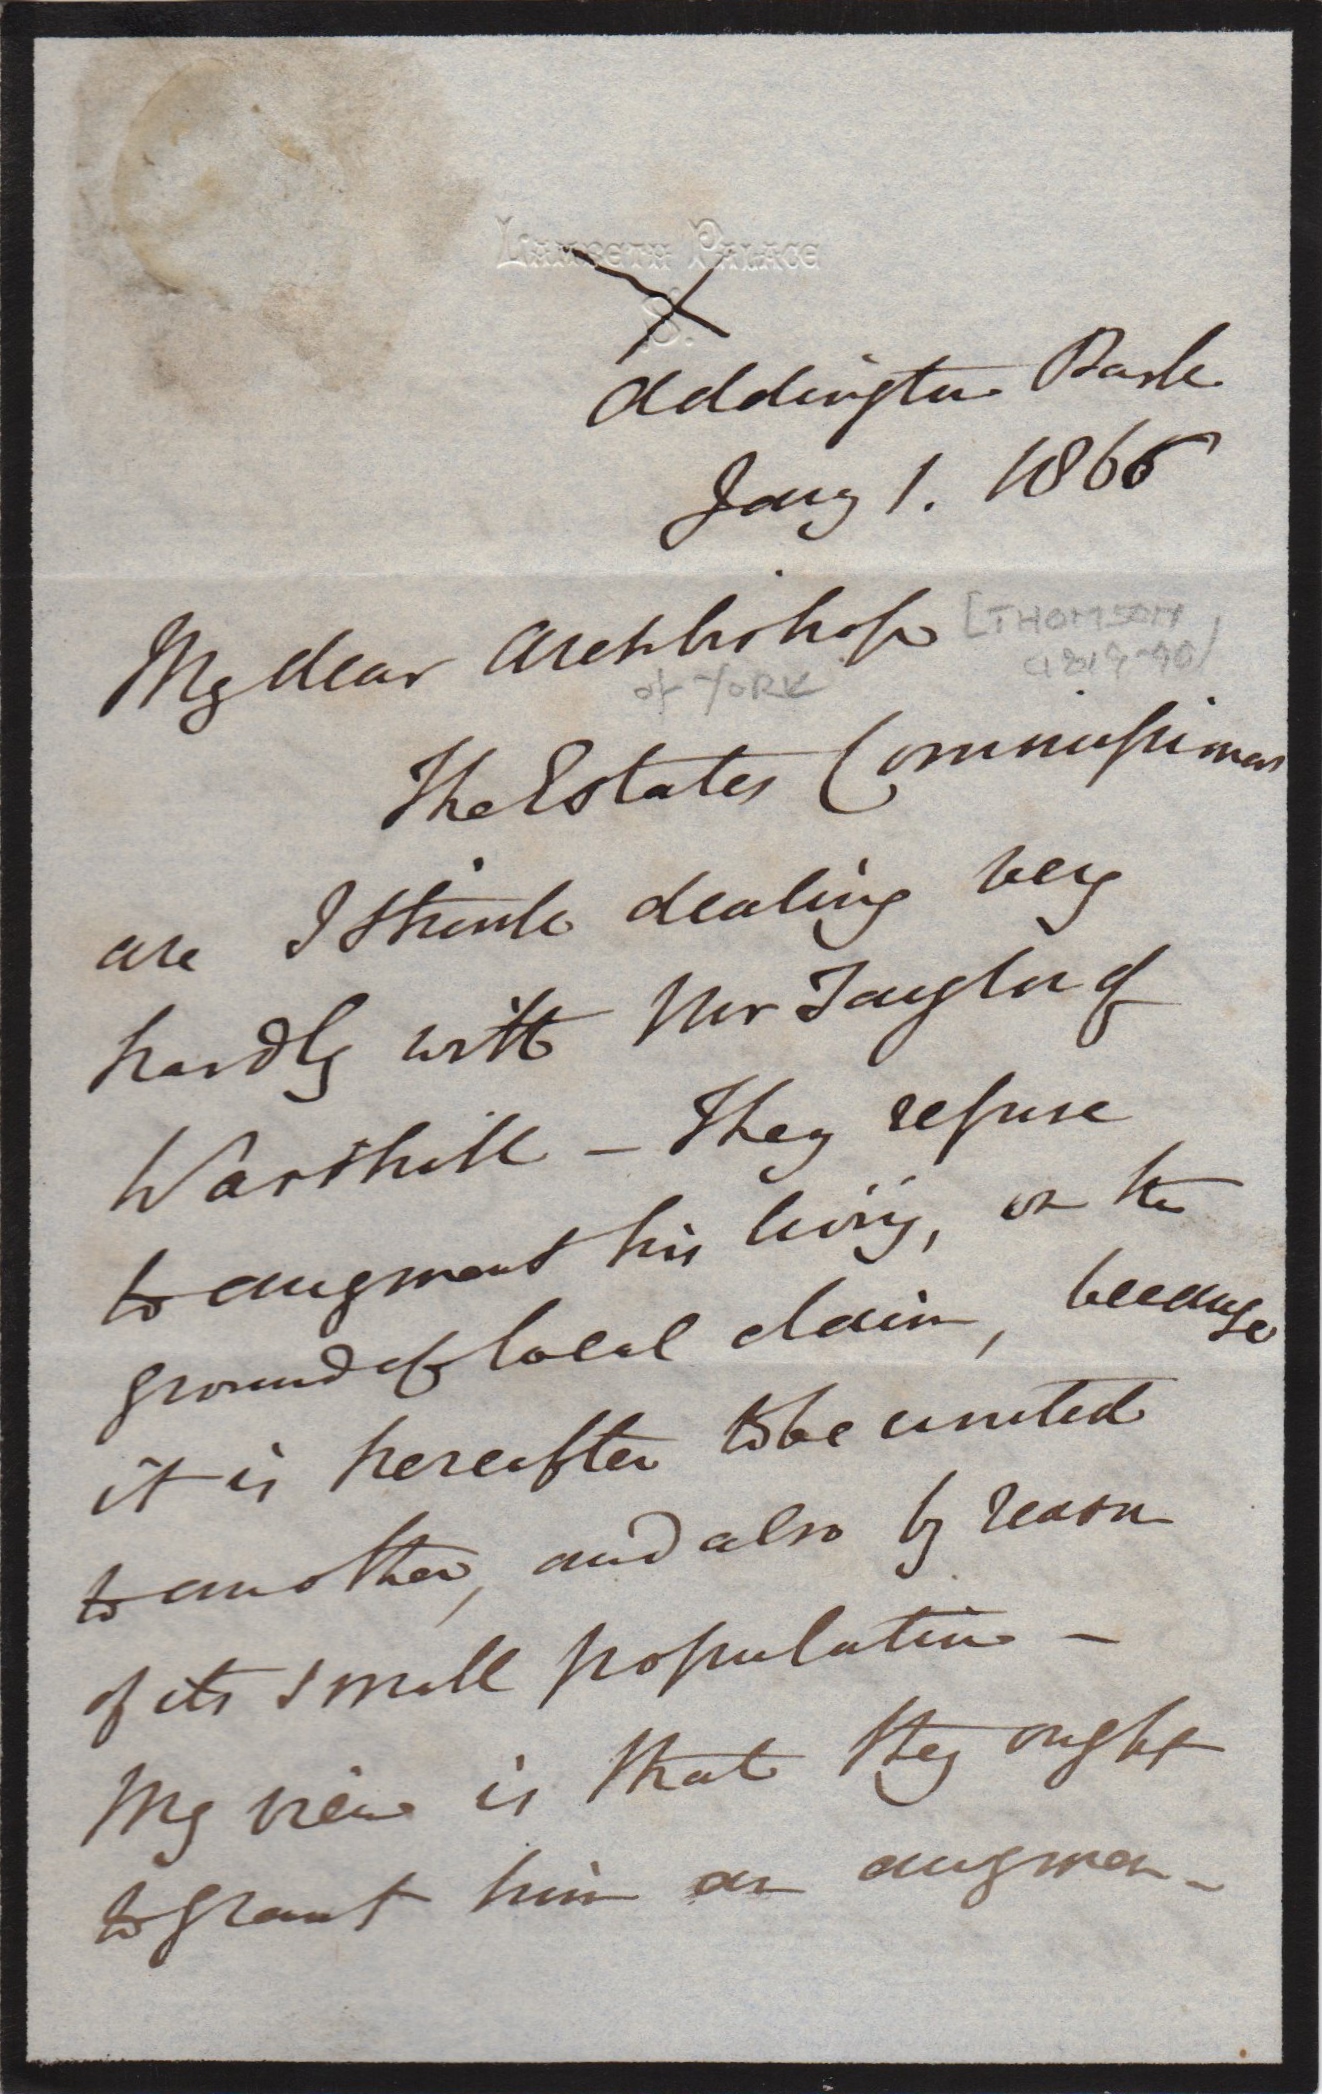 LAMBETH PALACE
S.
Addington Park
Jany 1. 1866
My dear Archbishop [THOMSON
(1819-90)]
of YORK
The Estates Commissioners
are I think dealing very
hardly with Mr Taylor of
Warthill – They refuse
to augment his living, on the
ground of local claim, because
it is hereafter to be united
to another, and also by reason
of its small population –
My view is that they ought
to grant him an augmen-